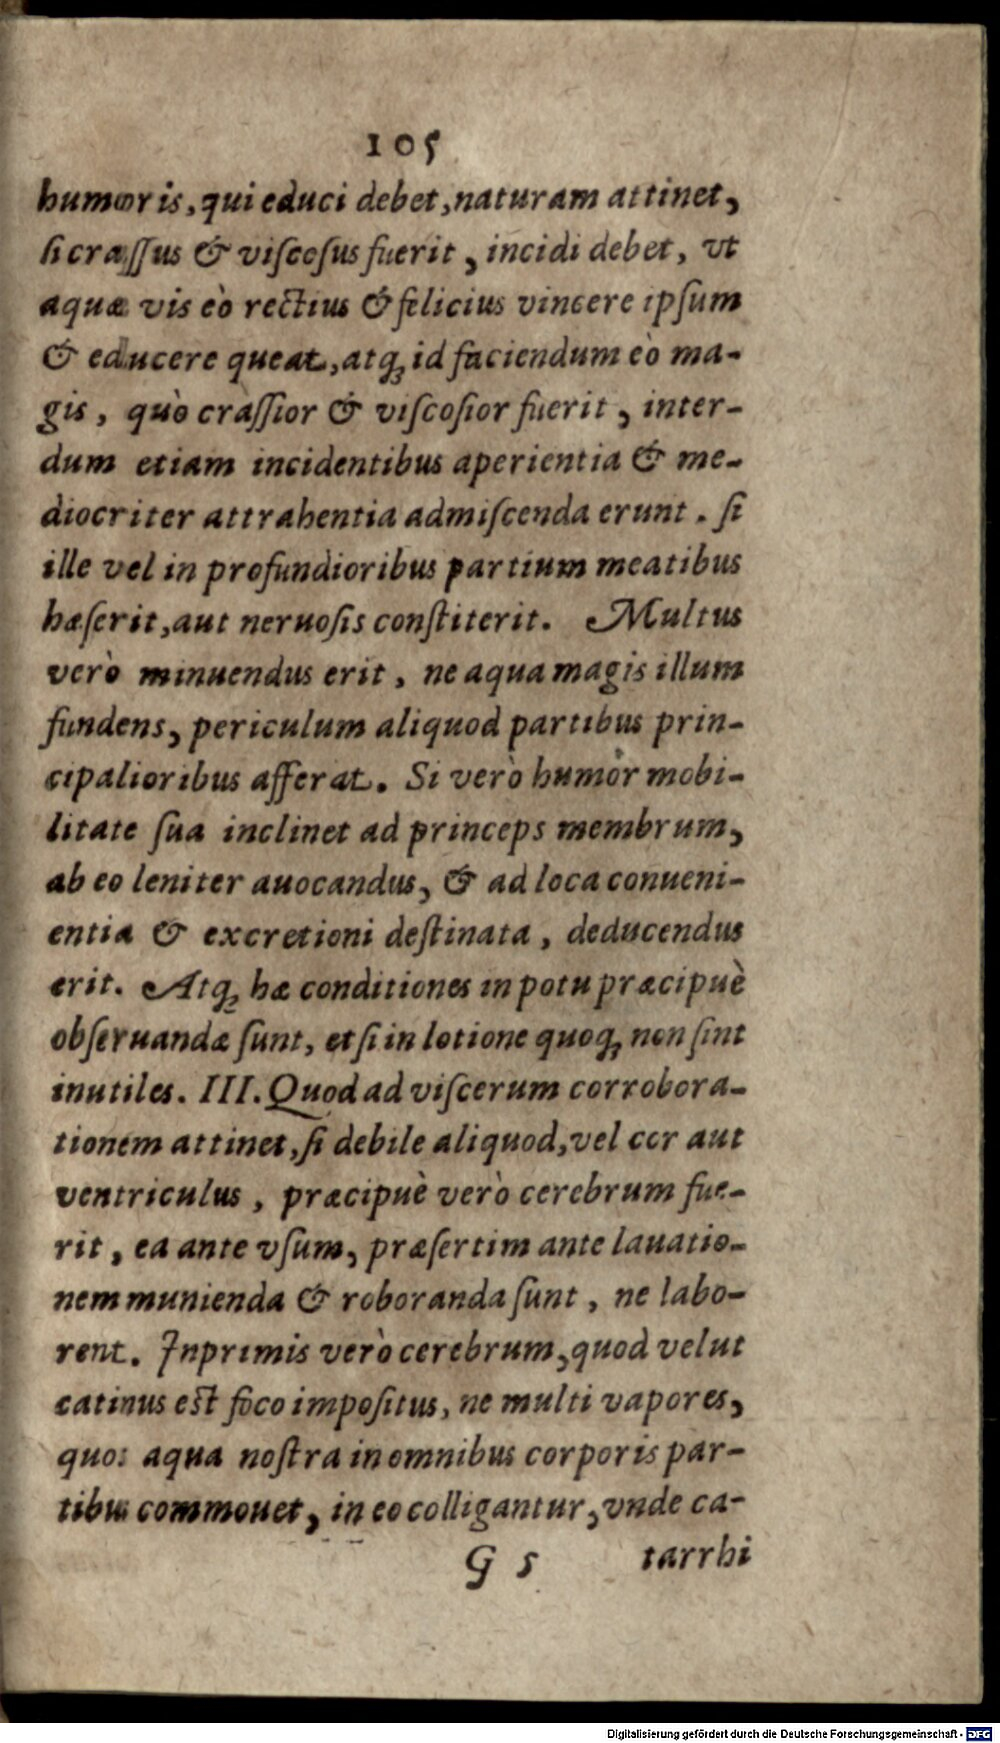 105
humoris, qui educi debet, naturam attinet,
si craſſus & viſcoſus fuerit, incidi debet, vt
aquæ vis eò rectius & felicius vincere ipſum
& educere queat, atq; id faciendum eò ma-
gis, quò craſſior & viſcoſior fuerit, inter-
dum etiam incidentibus aperientia & me-
diocriter attrahentia admiſcenda erunt. ſi
ille vel in profundioribus partium meatibus
hæſerit, aut neruoſis conſtiterit. Multus
verò minuendus erit, ne aqua magis illum
fundens, periculum aliquod partibus prin-
cipalioribus afferat. Si verò humor mobi-
litate ſua inclinet ad princeps membrum,
ab eo leniter auocandus, & ad loca conueni-
entia & excretioni deſtinata, deducendus
erit. Atq; hæ conditiones in potu præcipuè
obſeruandæ ſunt, etſi in lotione quoq; non ſint
inutiles. III. Quod ad viſcerum corrobora-
tionem attinet, ſi debile aliquod, vel cor aut
ventriculus, præcipuè verò cerebrum fue-
rit, ea ante vſum, præſertim ante lauatio-
nem munienda & roboranda ſunt, ne labo-
rent. Inprimis verò cerebrum, quod velut
catinus eſt foco impoſitus, ne multi vapores,
quos aqua noſtra in omnibus corporis par-
tibus commouet, in eo colligantur, vnde ca-
G 5 tarrhi
Digitalisierung gefördert durch die Deutsche Forschungsgemeinschaft - DFG